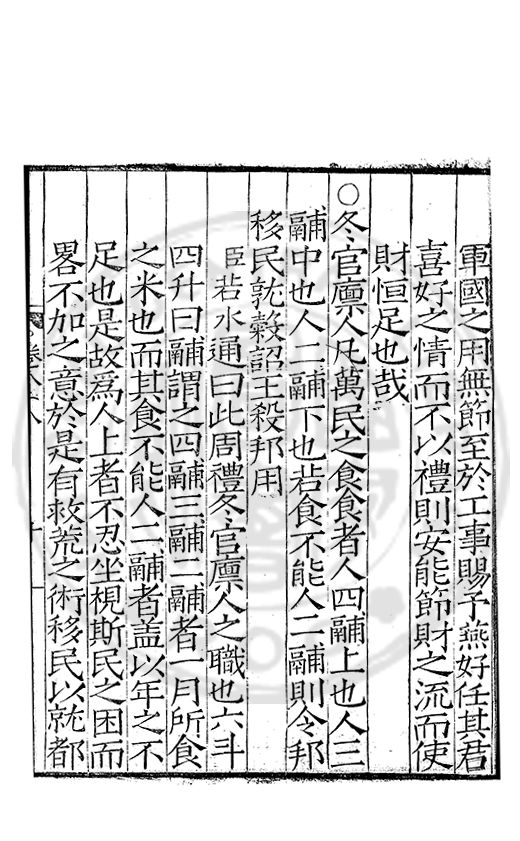 軍國之用無節至於工事賜予燕好任其君
喜好之情而不以禮則安能節財之流而使
財恒足也哉
○冬官廩人凡萬民之食食者人四鬴上也人三
鬴中也人二鬴下也若食不能人二鬴則令邦
移民就穀詔王殺邦用
臣若水通曰此周禮冬官廩人之職也六斗
四升曰鬴謂之四鬴三鬴二鬴者一月所食
之米也而其食不能人二鬴者盖以年之不
足也是故爲人上者不忍坐視斯民之困而
畧不加之意於是有救荒之術移民以就都